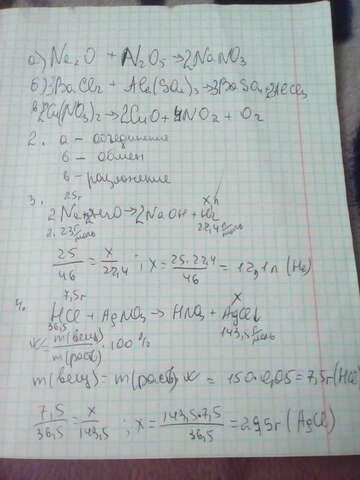 а) Na₂O + N₂O₅ → 2NaNO₃
б) 3BaCl₂ + Al₂(SO₄)₃ → 3BaSO₄ + 2AlCl₃
в) 2Cu(NO₃)₂ → 2CuO + 4NO₂ + O₂
2. а – объединение
б – обмен
в – разложение
3. 25г x л
2Na + 2H₂O → 2NaOH + H₂
2. 23 г/моль 22,4 л/моль
25/46 = x/22,4 ; x = 25·22,4/46 = 12,1л (H₂)
4. 7,5г x
HCl + AgNO₃ → HNO₃ + AgCl
36,5 143,5 г/моль
m(вещ)/m(раст) · 100%
m(вещ) = m(раст) · = 150·0,05 = 7,5г (HCl)
7,5/36,5 = x/143,5 ; x = 143,5·7,5/36,5 = 29,5г (AgCl)